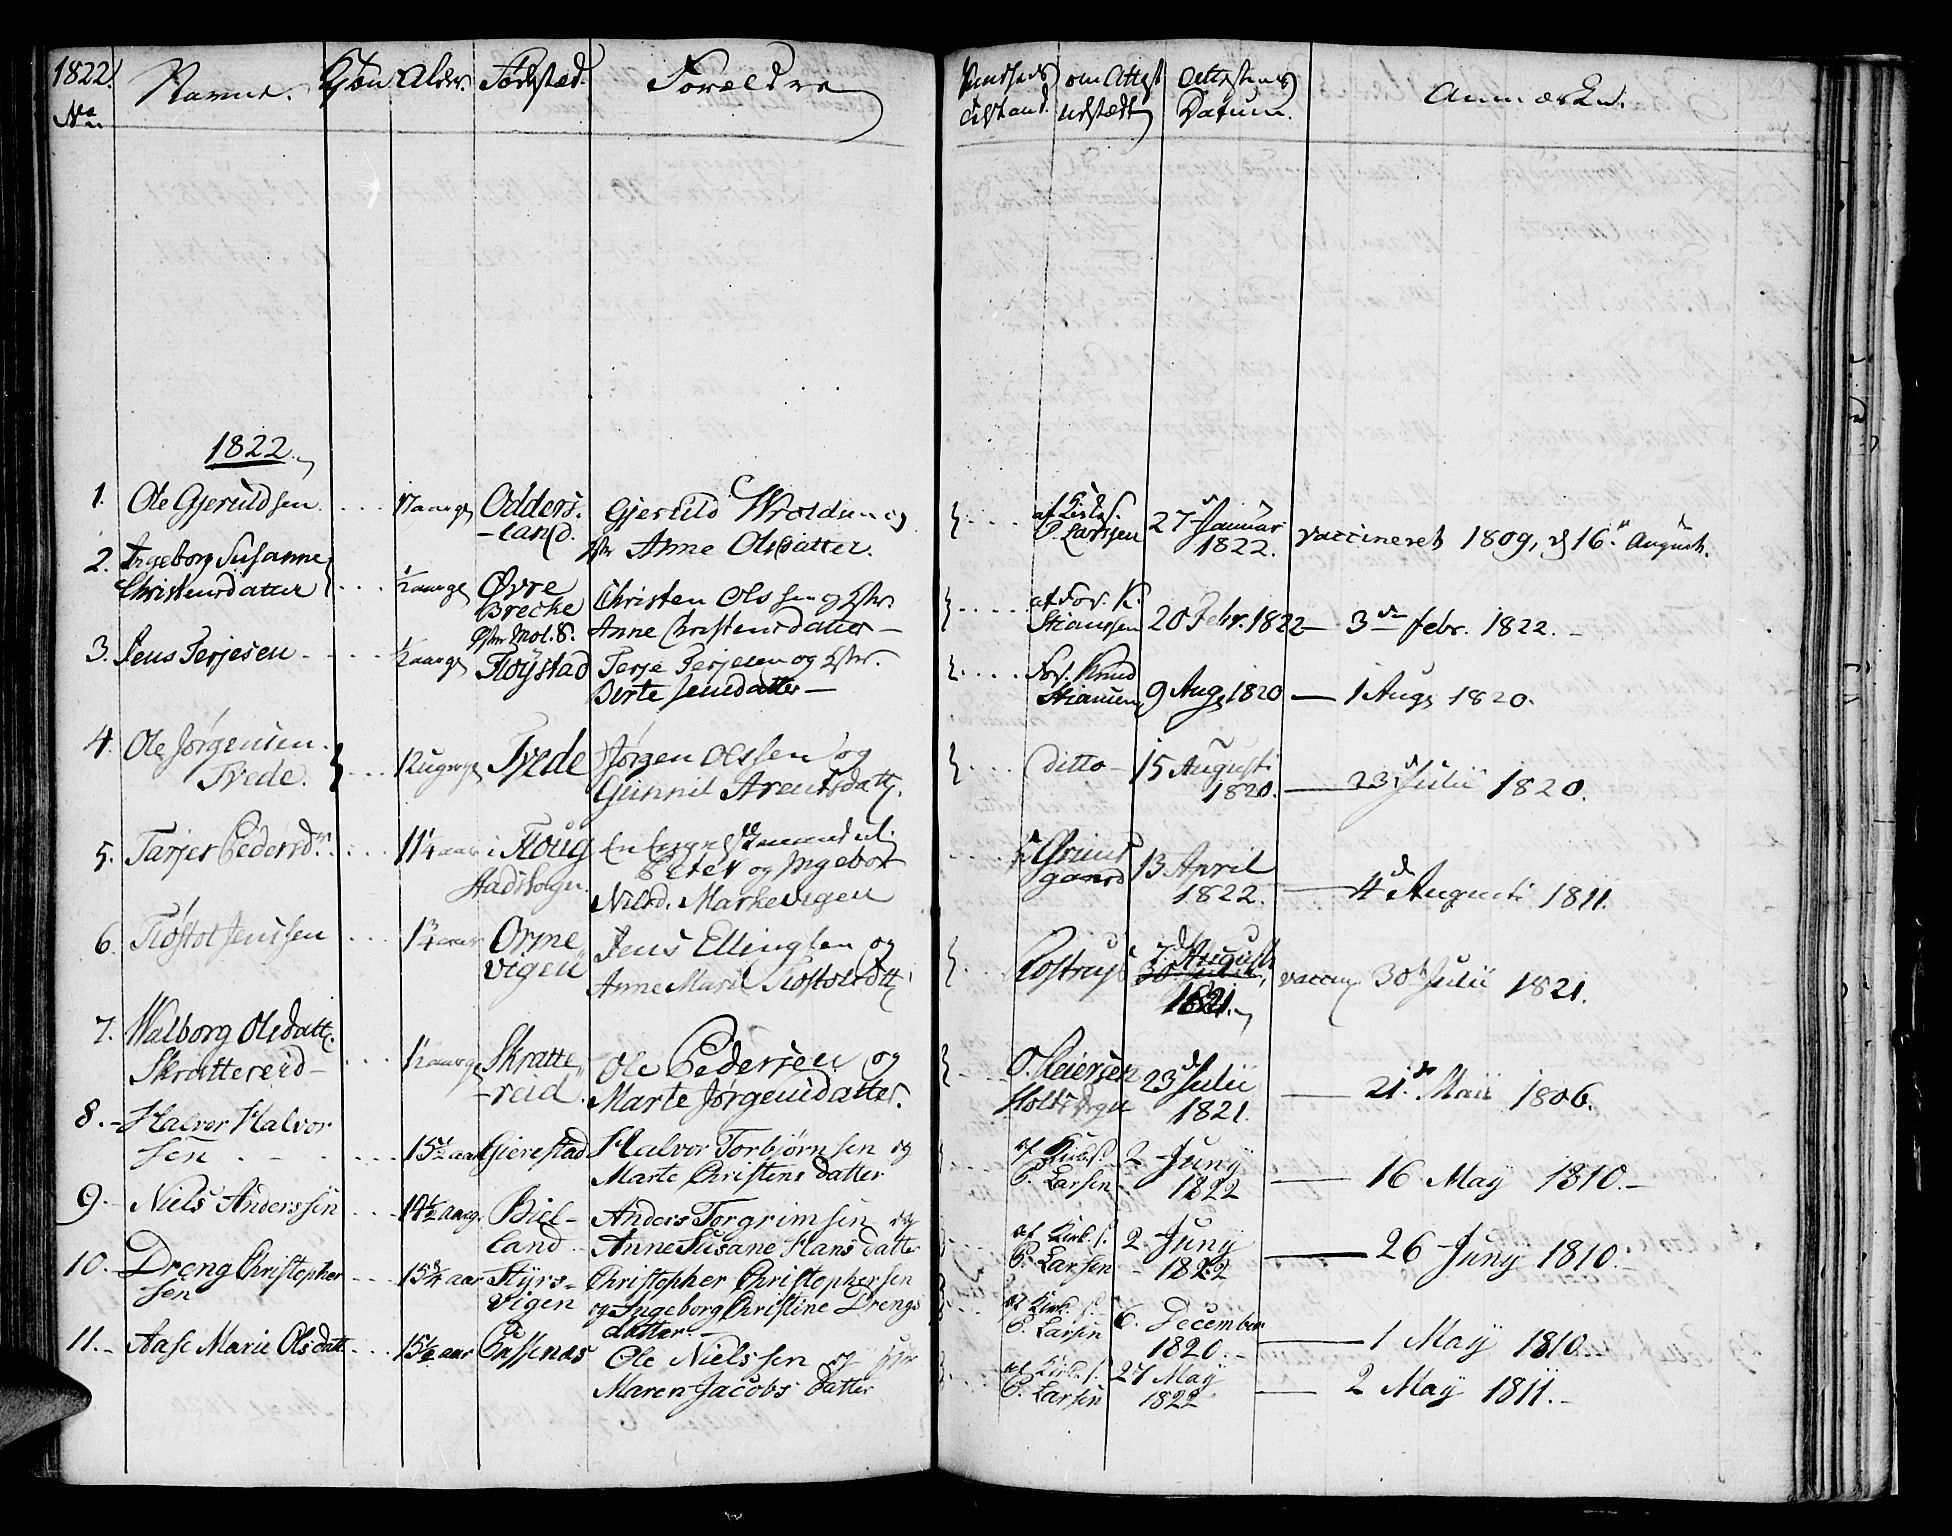 1822.
No
Navne.
Kjøn
Alder.
Fødested.
Forældre
om Attest
udstædt
Attestens
Datum.
Anmærkn.
1822.
1. Ole Gjeruldsen
Odders-
land.
Gjeruld Wroldsen og
Anne Olsdatter.
P. Larssen
27 Januar
1822.
vaccineret 1809, d 16. August.
2. Ingeborg Susanne
Christensdatter
Øvre
Brecke
Christen Olssen og Hstr.
Anne Christensdatter —
af For. K.
Stianssen
20 Febr. 1822
— 3 febr. 1822. —
3. Jens Terjesen
Fløystad
Terje Terjesen og Hstr.
Berte Jensdatter —
Knud
Stiansen
9 Aug 1820
— 1 Aug 1820.
4. Ole Jørgensen
Tvede.
Tvede
Jørgen Olssen og
Gunnil Arentsdatt.
ditto —
15 Augusti
1820.
— 23 Julii 1820.
5. Tarjer Pedersd.
11 1/4 aar
Peter og Ingebor
Nilsd. Markevigen
13 April
1822.
— 4 Augusti 1811.
6. Jenssen
1 3/4 aar
Orme
vigen
Jens Ellingsen og
Anne Marie
7 August
30 Julii
1821.
vaccin 30 Julii 1821.
7. Walborg Olsdatt.
Skrattereid —
Skratte
-reid.
Ole Pedersen og
Marte Jørgensdatter.
O. Peiersen
23 Julii
1821.
— 21. Maii 1806.
8. Halvor Halvor
sen
15 1/2 aar
Gierestad
Halvor Torbjørnsen og
Marte Christens datter
P. Larsen
2 Juny
1822
— 16 May 1810. —
9. Niels Anderssen
14 1/2 aar
Biel-
land
Anders Torgrimsen og
Anne Susane Hans datter
P. Larsen
2 Juny
1822
— 26 Juny 1810. —
10. Dreng Christopher
sen
15 3/4 aar
Styrs-
vigen
Christopher Christophersen
og Ingeborg Christine Drengs
datter —
P. Larsen
6. December
1820. —
— 1 May 1810. —
11. Aase Marie Olsdatt
15 1/2 aar
Ole Nielssen og
Maren Jacobs datter
P. Larsen
27 May
1822
— 2 May 1811. —